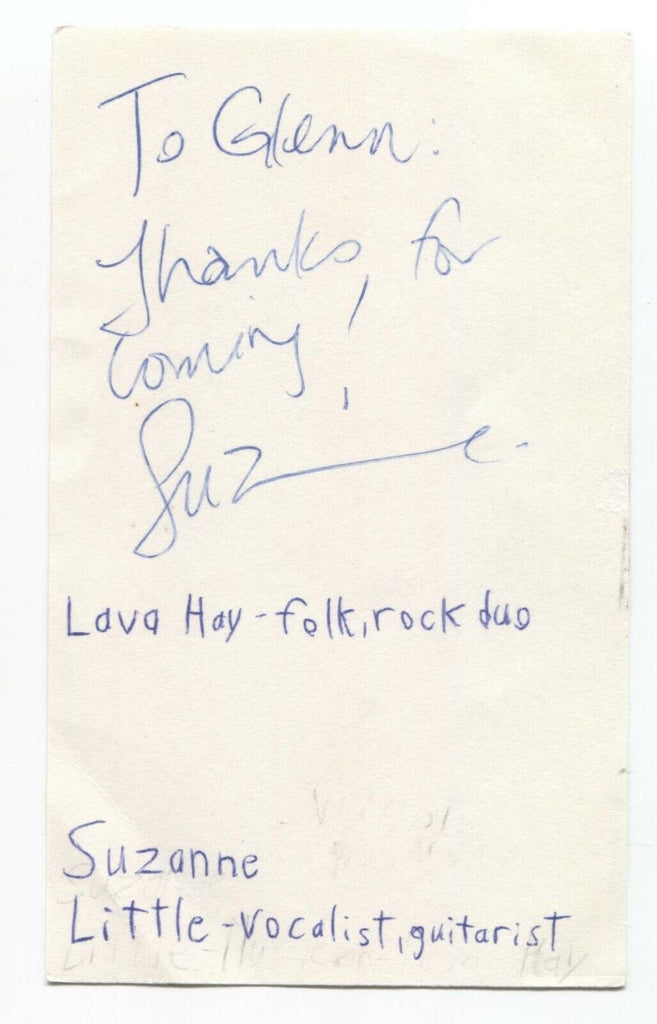 To Glenn:
Thanks for
coming!
Suzanne
Lava Hay - folk, rock duo
Suzanne
Little - vocalist, guitarist